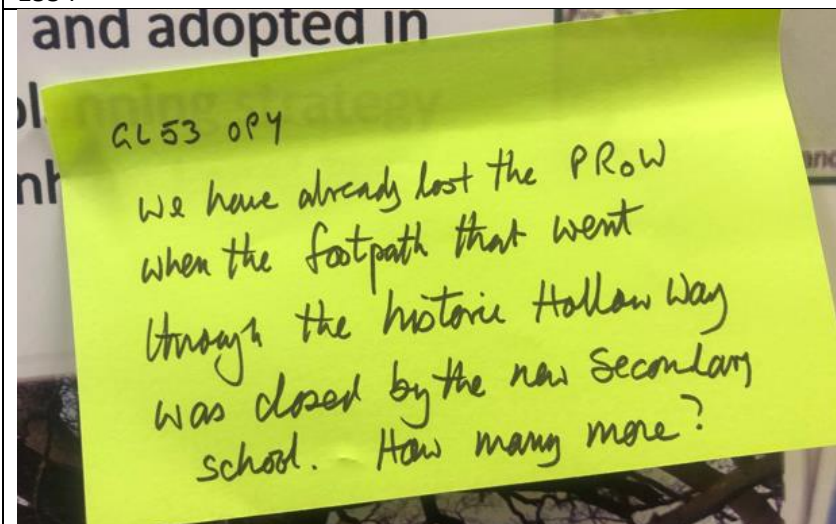 and adopted in
planning strategy
nh
GL53 0PY
We have already lost the PRoW
when the footpath that went
through the historic Hollow Way
was closed by the new Secondary
school. How many more?